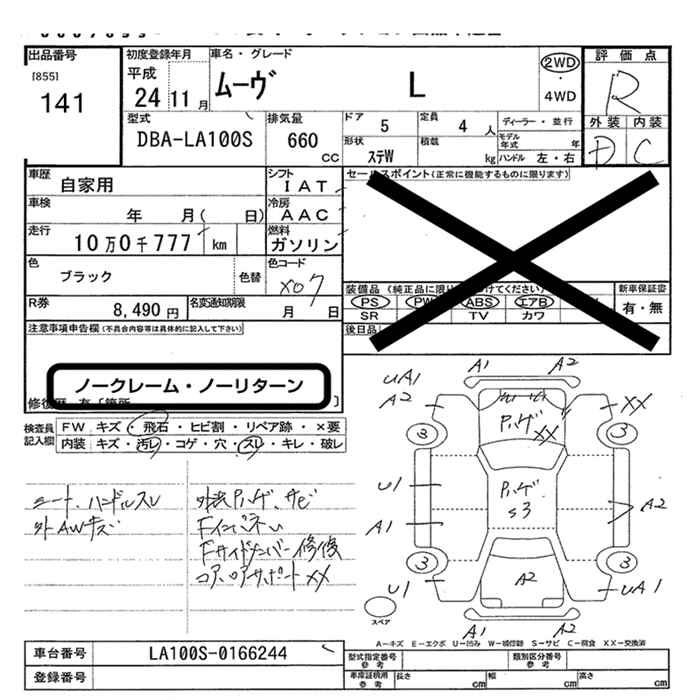 出品番号
[855]
141
初度登録年月
平成
24 11 月
車名・グレード
ムーヴ L
2WD
・
4WD
評価点
R
外装 内装
D C
型式
DBA-LA100S
排気量
660
CC
ドア 5
定員 4 人
ディーラー・並行
形状
ステW
積載
kg
モデル年式 年
ハンドル 左・右
車歴
自家用
シフト
IAT
セールスポイント(正常に機能するものに限ります)
車検
年 月( 日)
冷房
AAC
走行
10万0千777 km
燃料
ガソリン
色
ブラック
色替
色コード
X07
装備品(純正品に限り
けてください)
PS PW ABS エアB
SR TV カワ
新車保証書
有・無
R券
8,490 円
名変通知期限
月 日
後日品
注意事項申告欄(不具合内容等は具体的に記入して下さい)
ノークレーム・ノーリターン
修復歴
検査員
記入欄
FW キズ・飛石・ヒビ割・リペア跡・×要
内装 キズ・汚レ・コゲ・穴・スレ・キレ・破レ
シート、ハンドルスレ
外AWキズ
外装Pハゲ、サビ
Fインパネい
Fサイドメンバー修復
コア、コアサポートXX
A1 A2
UA1
A2
XX
Pハゲ
XX
3 3
U1
Pハゲ
S3
A2
A1
3 3
U1
A2
UA1
スペア
A1 A2
A-キズ E-エクボ U-凹み W-補修跡 S-サビ C-腐食 XX-交換済
車台番号
LA100S-0166244
登録番号
型式指定番号
参考
類別区分番号
参考
車庫証明用
参考
長さ cm
幅 cm
高さ cm